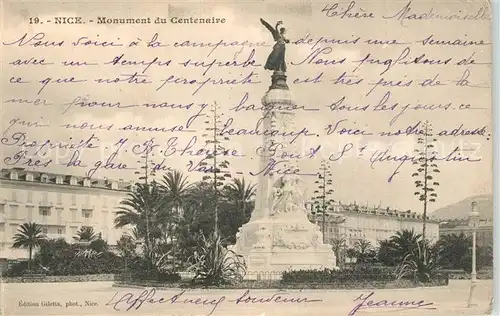 19. - NICE. - Monument du Centenaire
Chère Mademoiselle
Nous voici à la campagne depuis une semaine
avec un temps superbe. Nous profitons de
ce que notre propriété est très près de la
mer pour nous y baigner tous les jours ce
qui nous amuse beaucoup. Voici notre adresse.
Propriété J. B. Pont St Augustin
Près la gare du Var Nice
Affectueux souvenir Jeanne
Édition Giletta, phot., Nice.